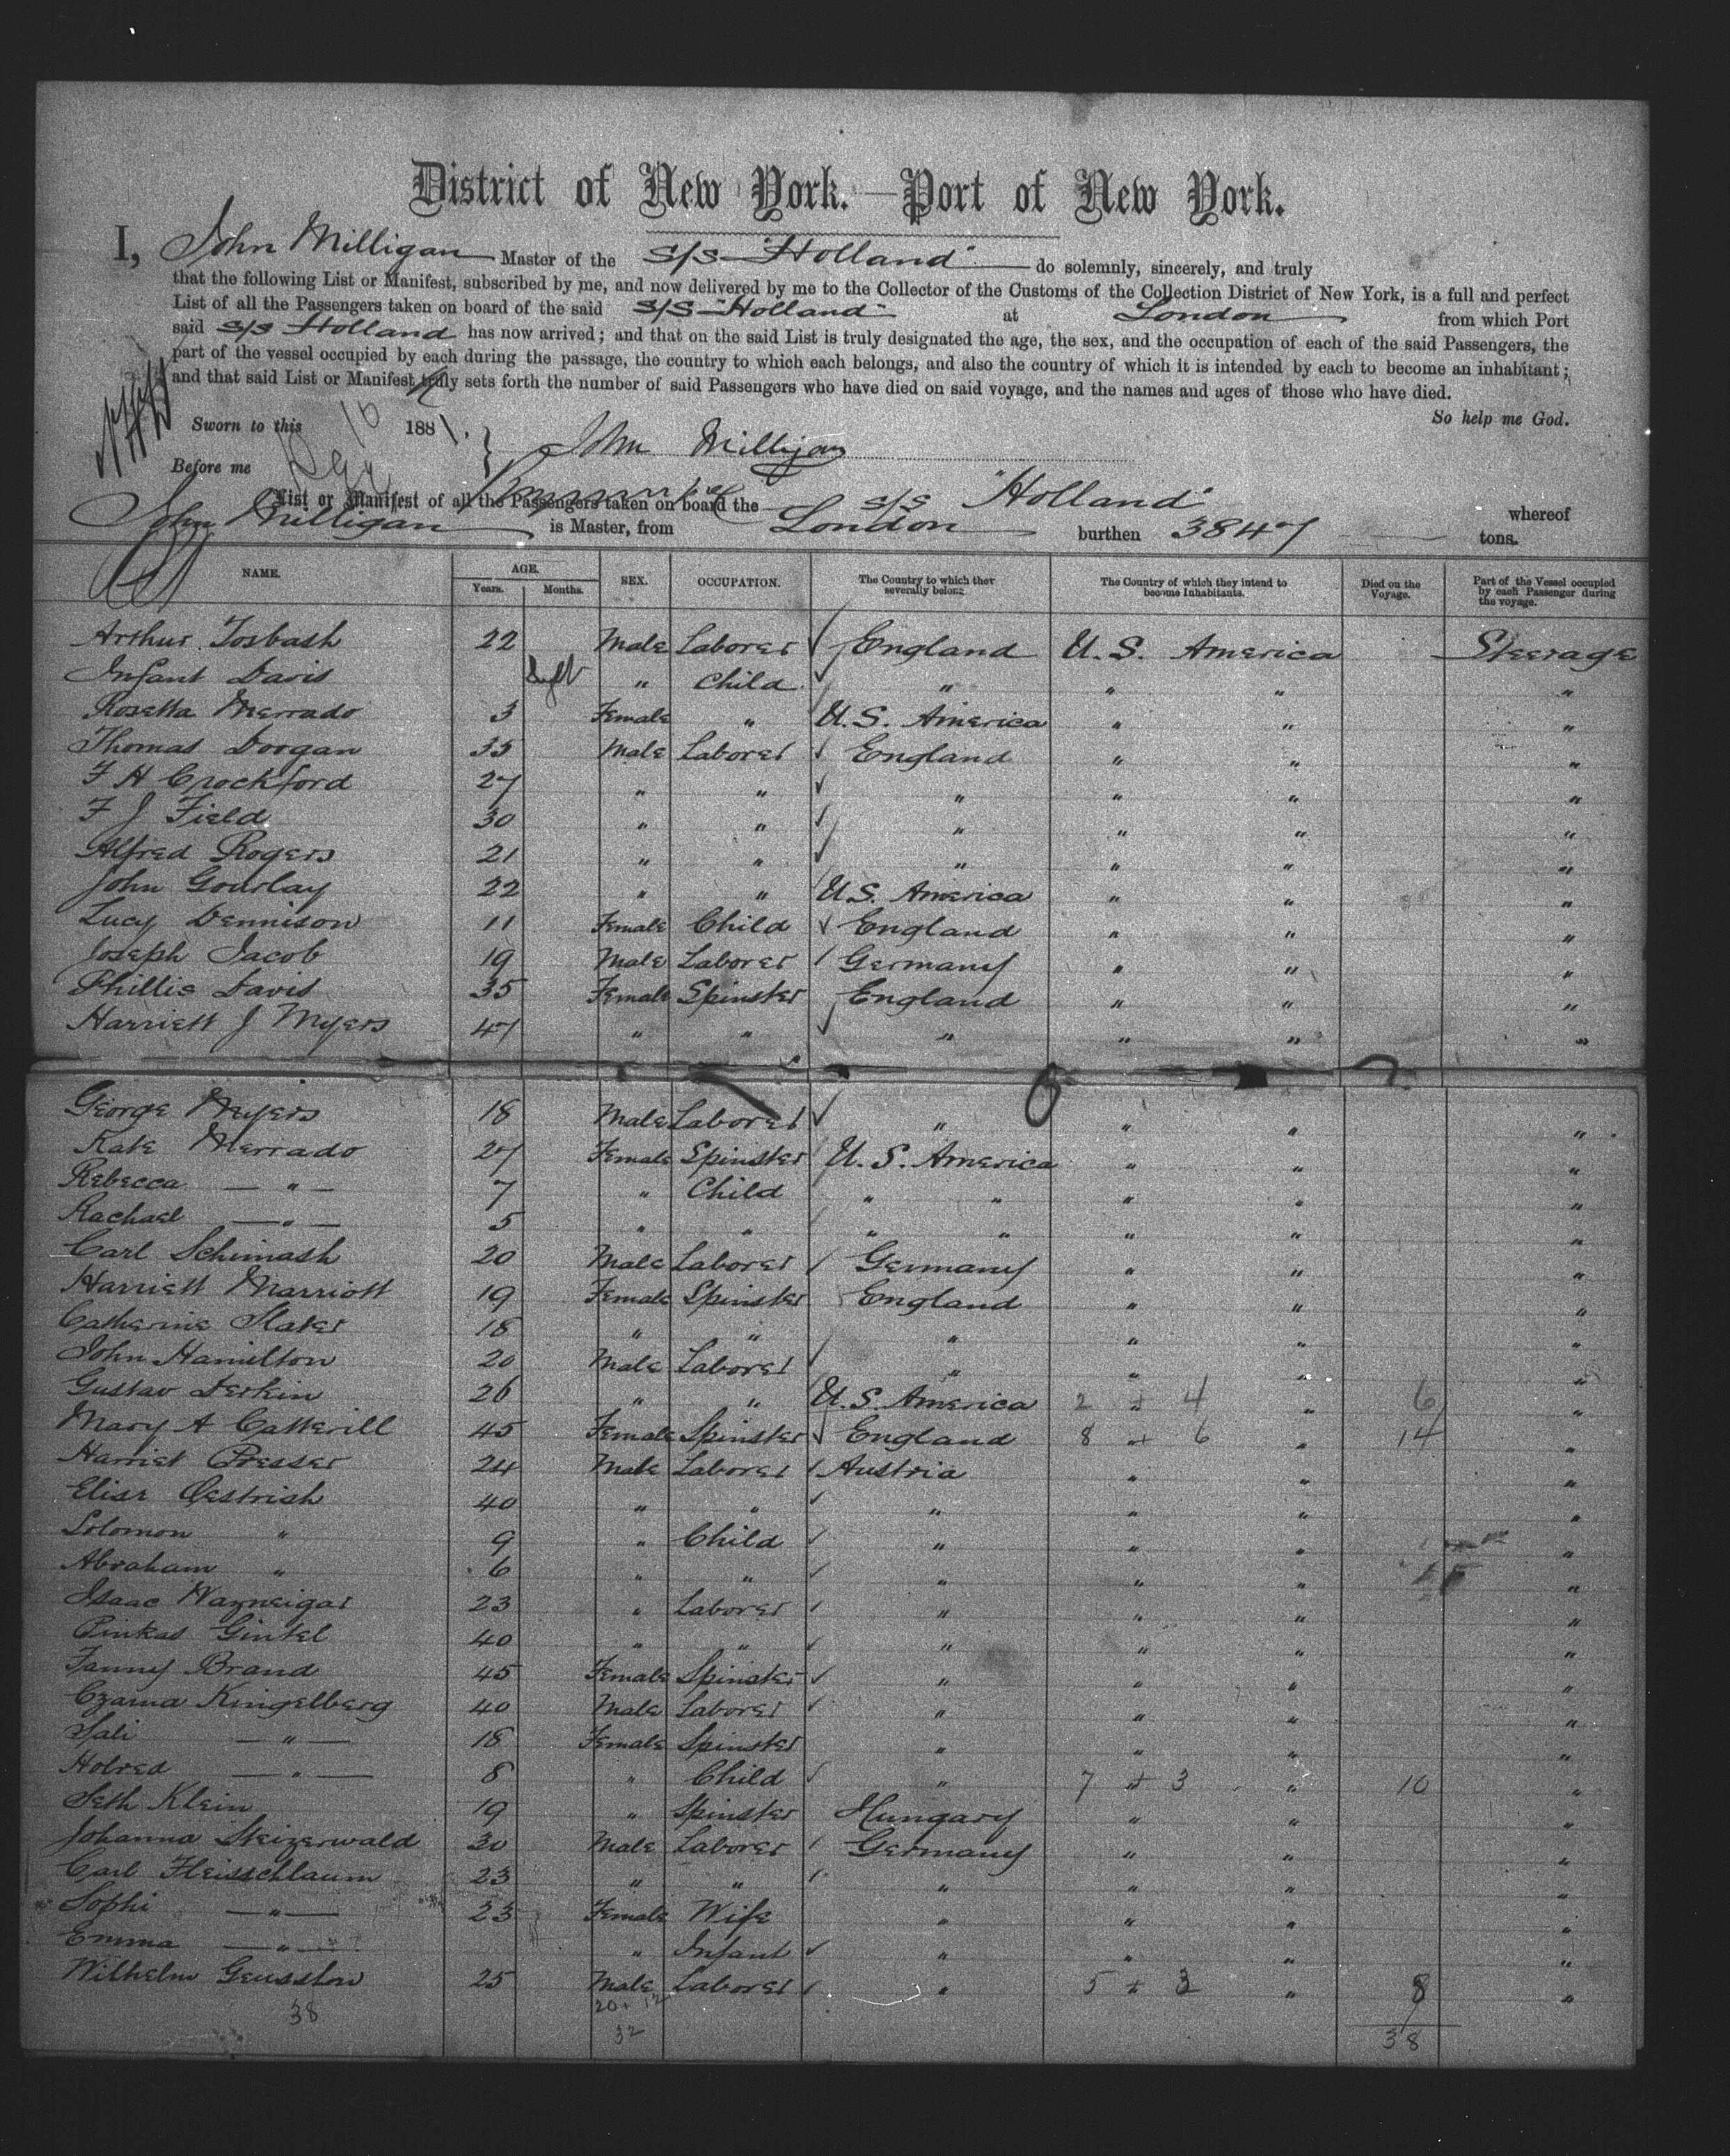 District of New York.—Port of New York.
I, John Milligan Master of the S/S "Holland" do solemnly, sincerely, and truly
that the following List or Manifest, subscribed by me, and now delivered by me to the Collector of the Customs of the Collection District of New York, is a full and perfect
List of all the Passengers taken on board of the said S/S "Holland" at London from which Port
said S/S Holland has now arrived; and that on the said List is truly designated the age, the sex, and the occupation of each of the said Passengers, the
part of the vessel occupied by each during the passage, the country to which each belongs, and also the country of which it is intended by each to become an inhabitant;
and that said List or Manifest truly sets forth the number of said Passengers who have died on said voyage, and the names and ages of those who have died.
So help me God.
Sworn to this 16 1881. John Milligan
Before me
List or Manifest of all the Passengers taken on board the S/S "Holland" whereof
John Milligan is Master, from London burthen 3847 tons.
NAME. AGE. Years. Months. SEX. OCCUPATION. The Country to which they severally belong. The Country of which they intend to become Inhabitants. Died on the Voyage. Part of the Vessel occupied by each Passenger during the voyage.
Arthur Tosbash 22 Male Laborer England U.S. America Steerage
Infant Davis " Child " " " "
Rosetta Merrado 3 Female " U.S. America " " "
Thomas Doogan 35 Male Laborer England " " "
F H Crockford 27 " " " " " "
F J Field 30 " " " " " "
Alfred Rogers 21 " " " " " "
John Gourlay 22 " " U.S. America " " "
Lucy Dennison 11 Female Child England " " "
Joseph Jacob 19 Male Laborer Germany " " "
Phillis Davis 35 Female Spinster England " " "
Harriett J Myers 47 " " " " " "
George Myers 18 Male Laborer " " " "
Kate Merrado 27 Female Spinster U.S. America " " "
Rebecca — " — 7 " Child " " " " "
Rachael — " — 5 " " " " " " "
Carl Schimash 20 Male Laborer Germany " " "
Harriett Marriott 19 Female Spinster England " " "
Catherine Slater 18 " " " " " "
John Hamilton 20 Male Laborer " " " "
Gustav Derkin 26 " " U.S. America 2 + 4 " 6 "
Mary A Catterill 45 Female Spinster England 8 + 6 " 14 "
Harriet Presser 24 Male Laborer Austria " " "
Elisr Oestrich 40 " " " " " "
Solomon " 9 " Child " " " "
Abraham " 6 " " " " " "
Isaac Wazneigar 23 " Laborer " " " "
Pinkas Gintel 40 " " " " " "
Fanny Brand 45 Female Spinster " " " "
Czarna Kingelberg 40 Male Laborer " " " "
Sali — " — 18 Female Spinster " " " "
Holred — " — 8 " Child " 7 + 3 " 10 "
Seth Klein 19 " Spinster Hungary " " "
Johanna Steizerwald 30 Male Laborer Germany " " "
Carl Fleisschlaum 23 " " " " " "
Sophi — " — 23 Female Wife " " " "
Emma — " — " Infant " " " "
Wilhelm Geusslow 25 Male Laborer " 5 + 3 " 8 "
38 20 + 12 38
32